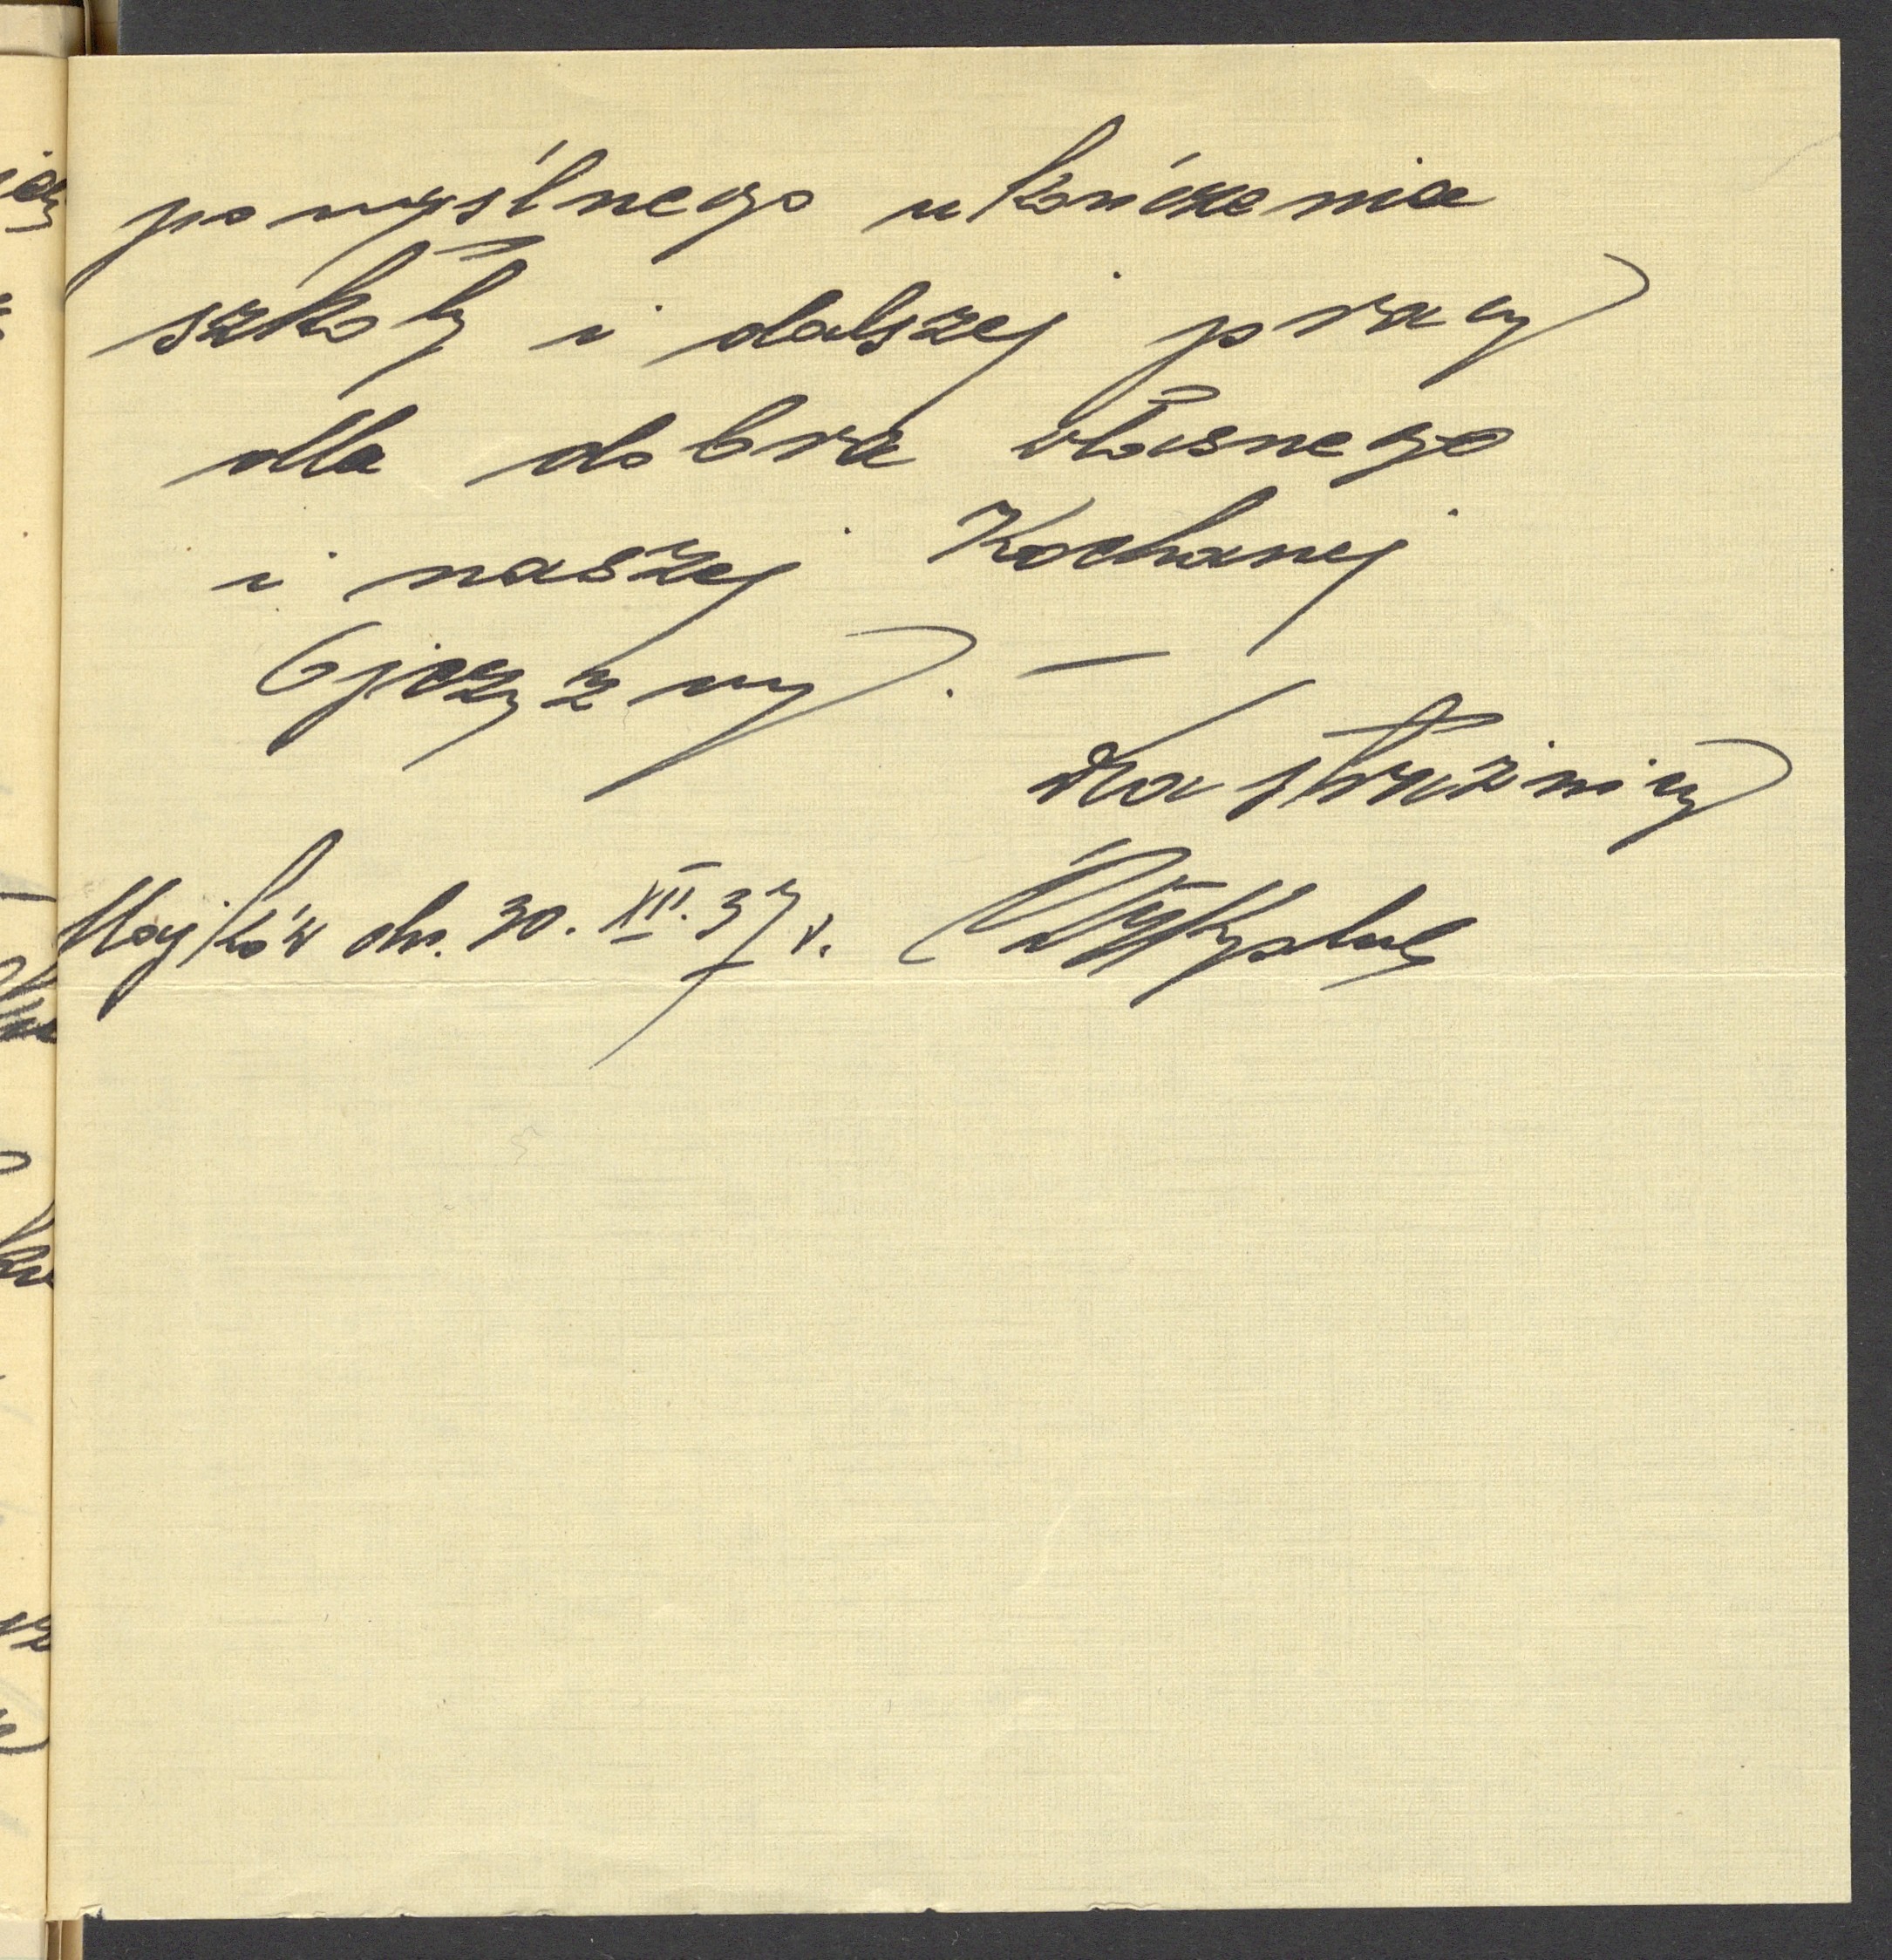 pomyślnego ukończenia
szkoły i dalszej pracy
dla dobra własnego
i naszej Kochanej
Ojczyzny. —
Za strażnicy
Mojków dn. 30. XII. 37 r.